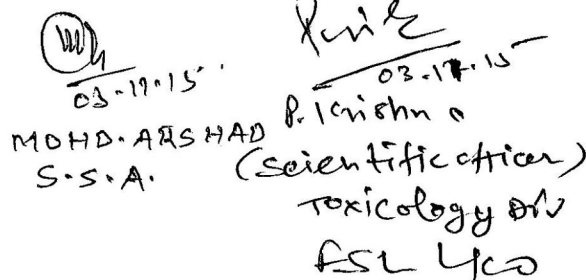 03.11.15
MOHD. ARSHAD
S.S.A.
03.11.15
P. Krishna
(scientific officer)
Toxicology Div
FSL LKO